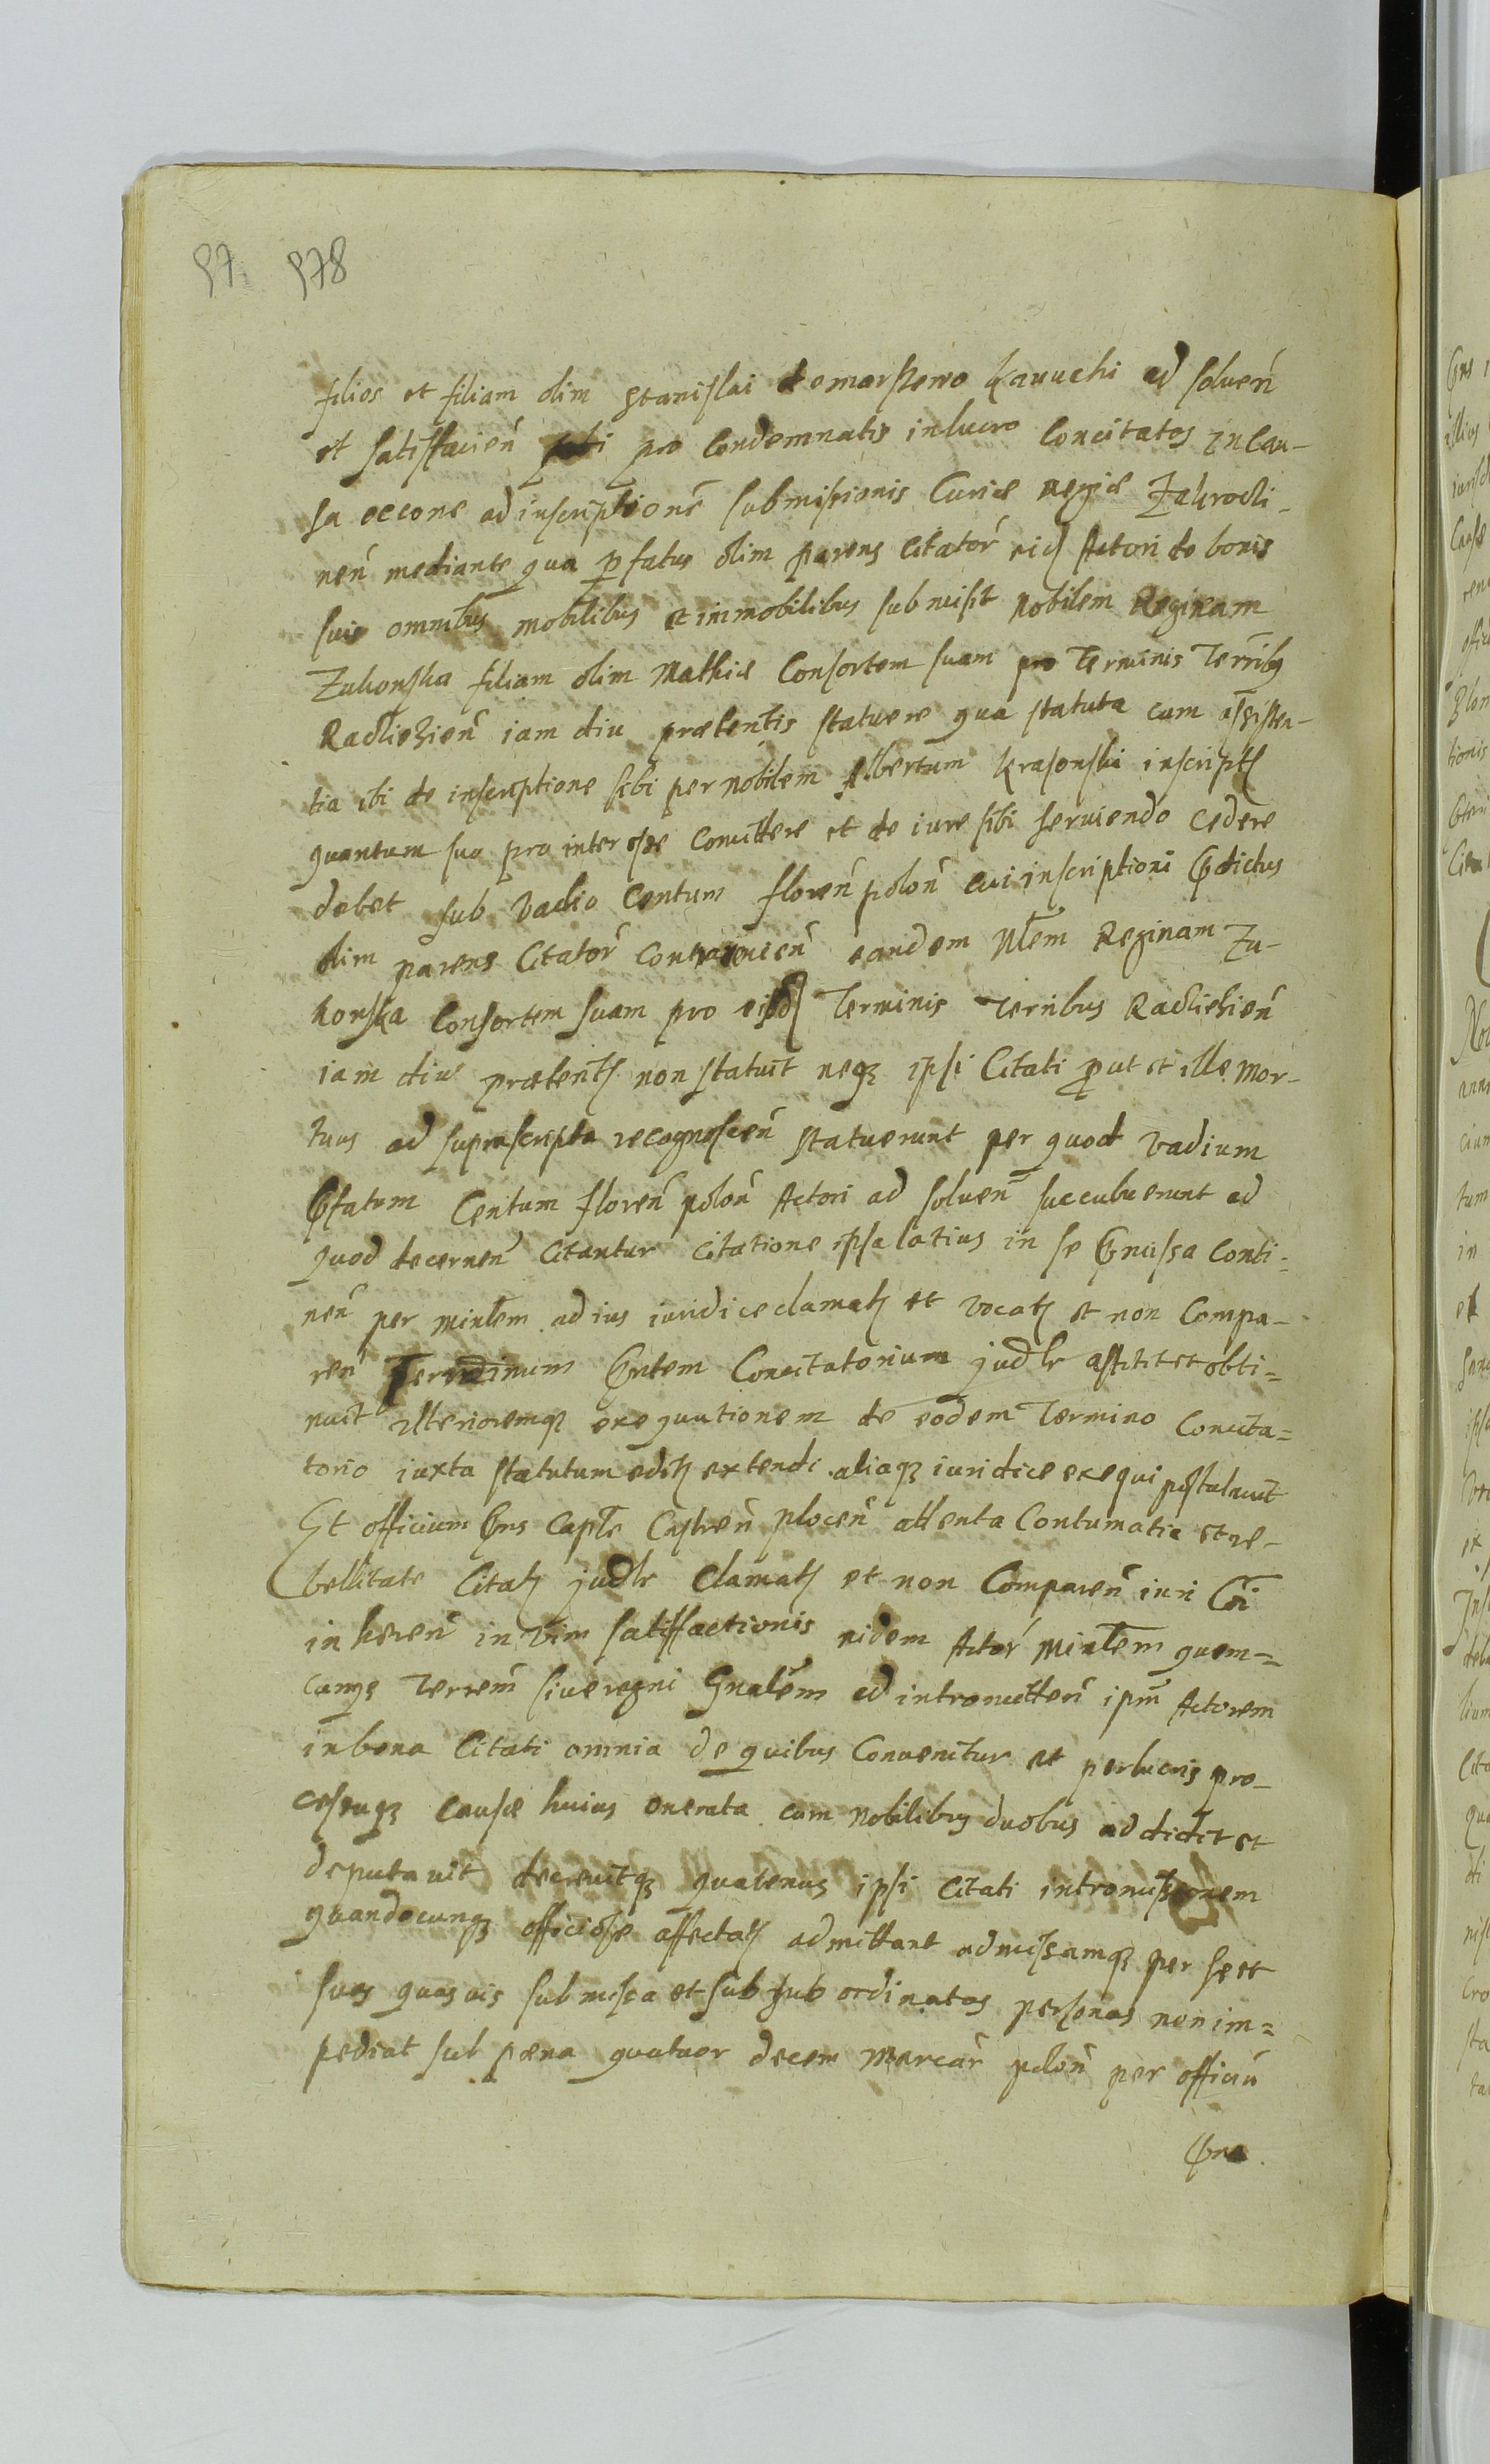 97 978
filios et filiam olim Stanislai de marszewo Kauuchi ad soluen̄
et satisfacien̄ pro Condemnatis in lucro Concitatos in Cau-
sa occone ad inscriptionē submissionis Curiæ regiæ Zakroczi-
nen̄ mediante qua p̱fatus olim parens Citator̄ eid Actori de bonis
suis omnibus mobilibus et immobilibus submisit Nobilem Reginam
Zukowska filiam olim Mathiæ Consortem suam pro Terminis Terribg
Radzieÿien̄ iam diu præteritis statuere qua statuta cum assisten-
tia ibi de inscriptione sibi per nobilem Albertum Krasowski inscript
quantum sua pro interesse Comittere et de iure sibi seruiendo Cedere
debet sub vadio Centum floren̄ polon̄ cui inscriptioni Prædictus
olim parens Citator̄ Contrauenien̄ eandem Nlem Reginam Zu-
kowska Consortem suam pro eisd Terminis Terribus Radzieien̄
iam diu præterit non statuit neqz ipsi Citati prout et ille mor-
tuus ad suprascripta recognoscen̄ statuerunt per quod vadium
Præfatum Centum floren̄ polon̄ Actori ad soluen̄ succubuerunt ad
quod decernen̄ Citantur Citatione ipsa latius in se Præmissa Conti-
nen̄ per minlem ad ius iuridice clamat et vocat et non Compa-
ren̄ Terminum Prntem Concitatorium judlr astitit et obti=
nuit ulterioremqz exequutionem de eodem Termino Concita=
torio iuxta statutum edit extendi aliaqz iuridice exequi postulauit
Et officium Prns Capłe Castren̄ plocen̄ attenta Contumatia et re-
bellitate Citat judlr Clamat et non Comparen̄ iuri Cōi
inheren̄ in vim satisfactionis eidem Actor̄ Minlem quem=
cunqz Terrem̄ siue regni Gnalem ad intromitten̄ ipm̄ Actorem
in bona Citati omnia de quibus Conuenitur et per lucris pro-
cessuqz Causæ huius onerata cum Nobilibus duobus addidit et
deputauit decreuitqz quatenus ipsi Citati intromissionem
quandocunqz officiose affectat admittant admissamqz per se et
suas quasuis submissa et sub sub ordinatas personas non im=
pediat sub pæna quatuor decem Marcar̄ polon̄ per officiū
Prns